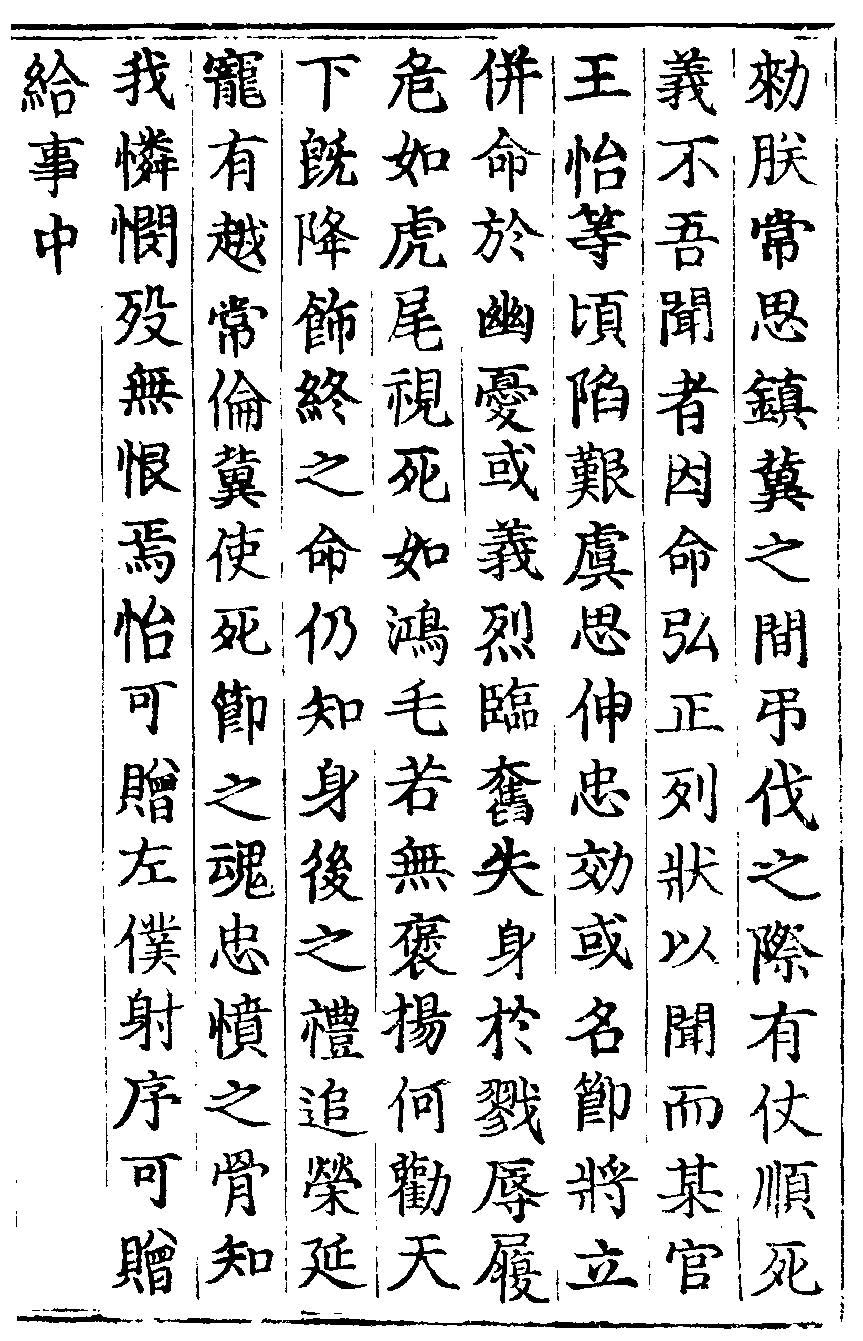 勑朕常思鎮冀之間弔伐之際有仗順死
義不吾聞者因命弘正列狀以聞而某官
王怡等頃陷艱虞思伸忠効或名節將立
併命於幽憂或義烈臨奮失身於戮辱履
危如虎尾視死如鴻毛若無褒揚何勸天
下旣降飾終之命仍知身後之禮追榮延
寵有越常倫冀使死節之魂忠憤之骨知
我憐憫歿無恨焉怡可贈左僕射序可贈
給事中